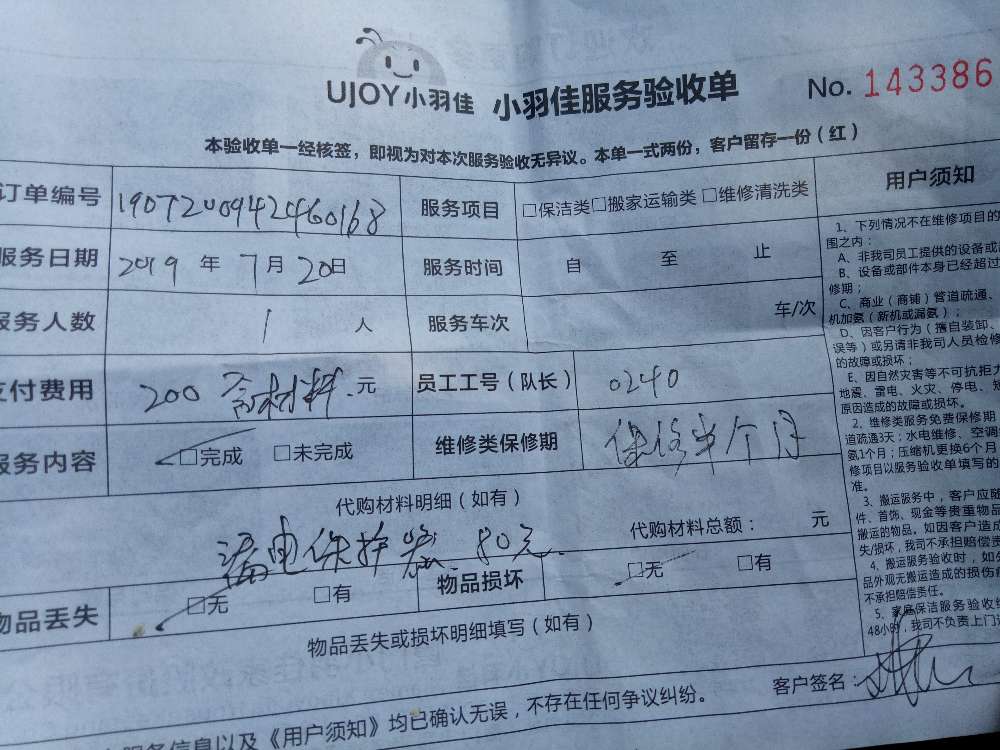 UJOY小羽佳 小羽佳服务验收单 No. 143386
本验收单一经核签，即视为对本次服务验收无异议。本单一式两份，客户留存一份（红）
订单编号 19072009424460168 服务项目 □保洁类□搬家运输类□维修清洗类
服务日期 2019 年 7 月 20 日 服务时间 自 至 止
服务人数 1 人 服务车次 车/次
支付费用 200 含材料 元 员工工号（队长） 0240
服务内容 □完成 □未完成 维修类保修期 保修半个月
代购材料明细（如有）
漏电保护器 80元 代购材料总额： 元
物品丢失 □无 □有 物品损坏 □无 □有
物品丢失或损坏明细填写（如有）
服务信息以及《用户须知》均已确认无误，不存在任何争议纠纷。
客户签名：
用户须知
1、下列情况不在维修项目的
围之内：
A、非我司员工提供的设备或
B、设备或部件本身已经超过
修期；
C、商业（商铺）管道疏通、
机加氨（新机或漏氨）；
D、因客户行为（擅自装卸、
误等）或另请非我司人员检修
的故障或损坏；
E、因自然灾害等不可抗拒力
地震、雷电、火灾、停电、短
原因造成的故障或损坏。
2、维修类服务免费保修期
道疏通3天；水电维修、空调
氨1个月；压缩机更换6个月
修项目以服务验收单填写的
准。
3、搬运服务中，客户应随
件、首饰、现金等贵重物品
搬运的物品。如因客户造成
失/损坏，我司不承担赔偿责
4、搬运服务验收时，如
品外观无搬运造成的损伤
不承担赔偿责任。
5、家庭保洁服务验收
48小时，我司不负责上门